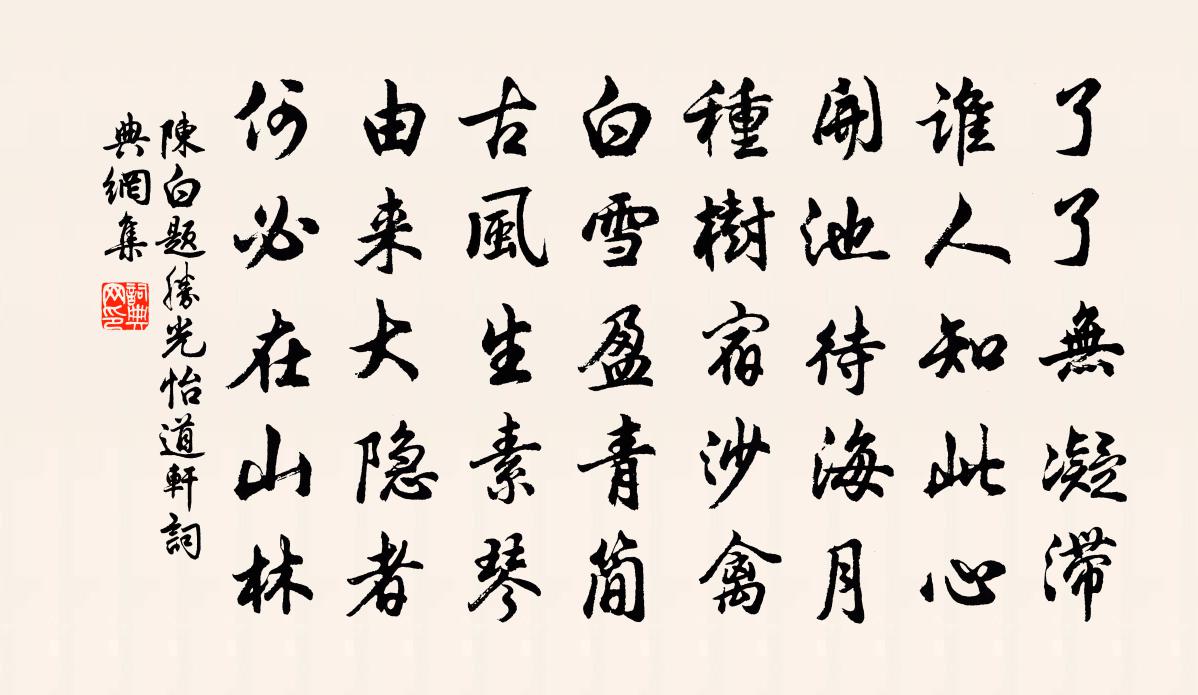 了了無凝滯
誰人知此心
開池待海月
種樹宿沙禽
白雪盈青简
古風生素琴
由来大隐者
何必在山林
陳白题勝光怡道軒詞
典網集
詞典
网印